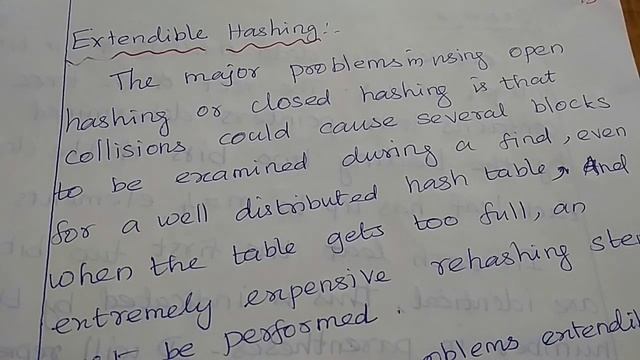 Extendible Hashing:-
The major problems in using open
hashing or closed hashing is that
collisions could cause several blocks
to be examined during a find, even
for a well distributed hash table, And
when the table gets too full, an
extremely expensive rehashing ste
be performed.
oblems extendil